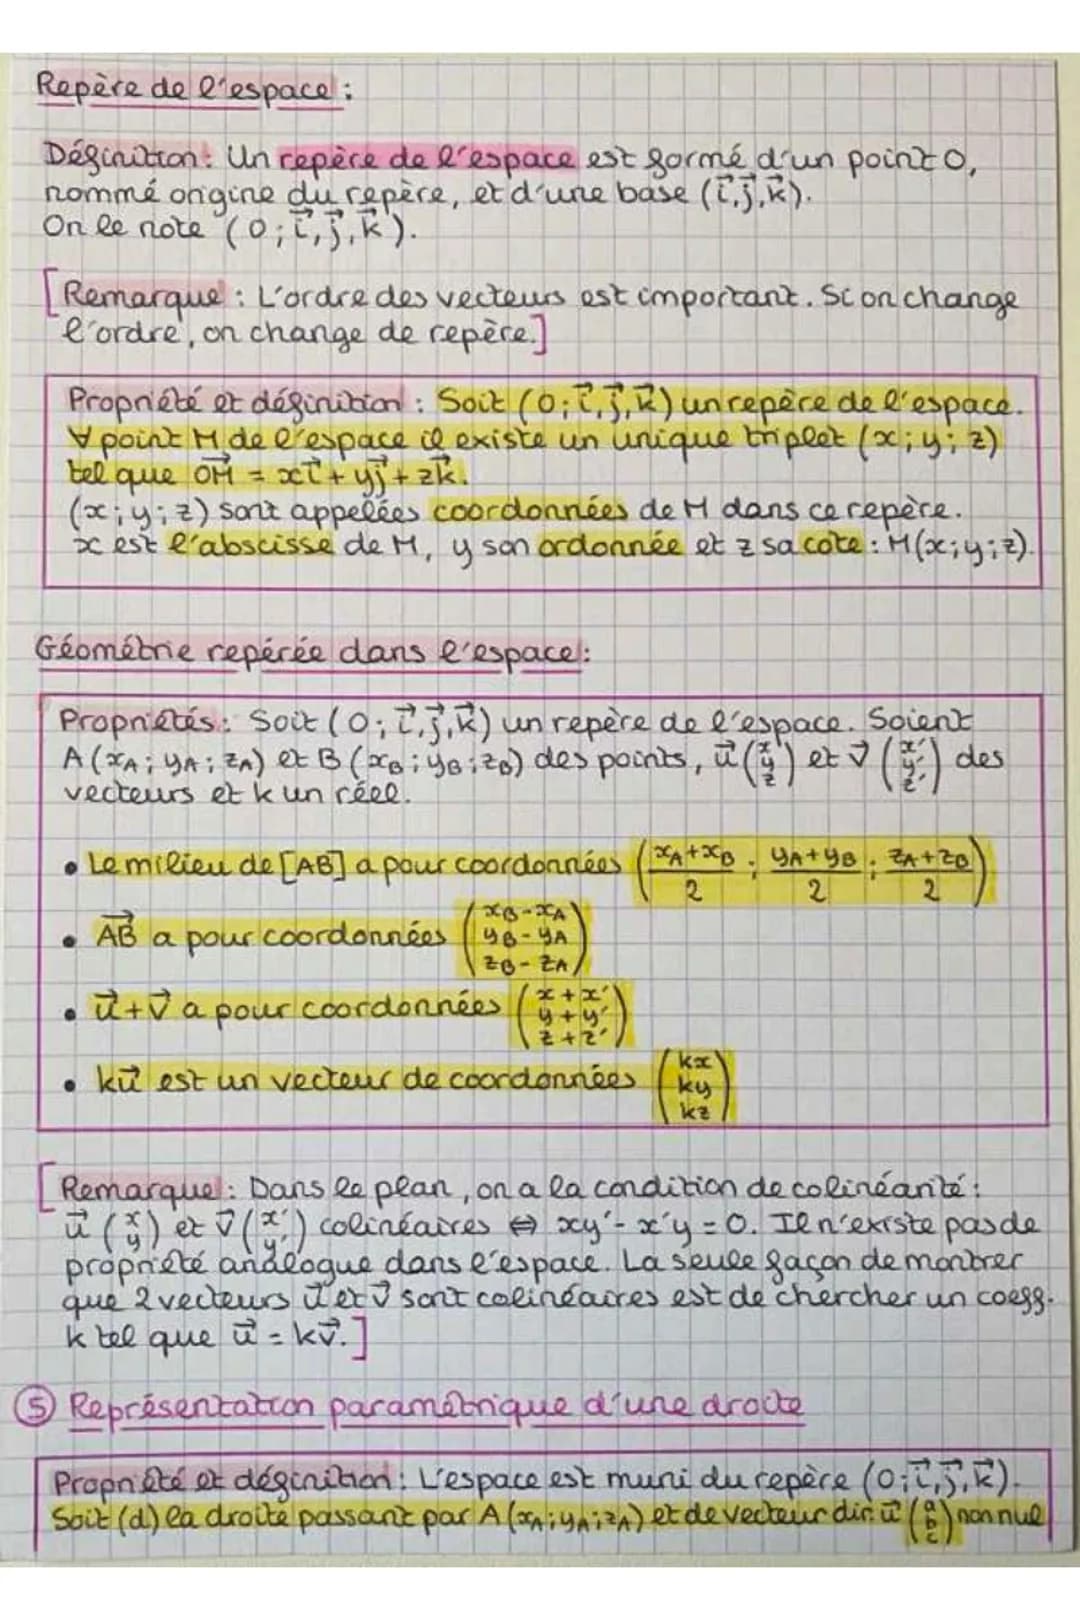 Repère de l'espace :
Définition : Un repère de l'espace est formé d'un point O,
nommé origine du repère, et d'une base (i⃗, j⃗, k⃗).
On le note (O ; i⃗, j⃗, k⃗).
[Remarque : L'ordre des vecteurs est important. Si on change
l'ordre, on change de repère.]
Propriété et définition : Soit (O ; i⃗, j⃗, k⃗) un repère de l'espace.
∀ point M de l'espace il existe un unique triplet (x ; y ; z)
tel que OM⃗ = xi⃗ + yj⃗ + zk⃗.
(x ; y ; z) sont appelées coordonnées de M dans ce repère.
x est l'abscisse de M, y son ordonnée et z sa cote : M(x ; y ; z).
Géométrie repérée dans l'espace :
Propriétés : Soit (O ; i⃗, j⃗, k⃗) un repère de l'espace. Soient
A(xA ; yA ; zA) et B(xB ; yB ; zB) des points, u⃗ (x y z) et v⃗ (x' y' z') des
vecteurs et k un réel.
• Le milieu de [AB] a pour coordonnées ((xA+xB)/2 ; (yA+yB)/2 ; (zA+zB)/2)
• AB⃗ a pour coordonnées (xB-xA yB-yA zB-zA)
• u⃗+v⃗ a pour coordonnées (x+x' y+y' z+z')
• ku⃗ est un vecteur de coordonnées (kx ky kz)
[Remarque : Dans le plan, on a la condition de colinéarité :
u⃗ (x y) et v⃗ (x' y') colinéaires ⇔ xy'-x'y = 0. Il n'existe pas de
propriété analogue dans l'espace. La seule façon de montrer
que 2 vecteurs u⃗ et v⃗ sont colinéaires est de chercher un coeff.
k tel que u⃗ = kv⃗.]
⑤ Représentation paramétrique d'une droite
Propriété et définition : L'espace est muni du repère (O ; i⃗, j⃗, k⃗).
Soit (d) la droite passant par A(xA ; yA ; zA) et de vecteur dir. u⃗ (a b c) non nul